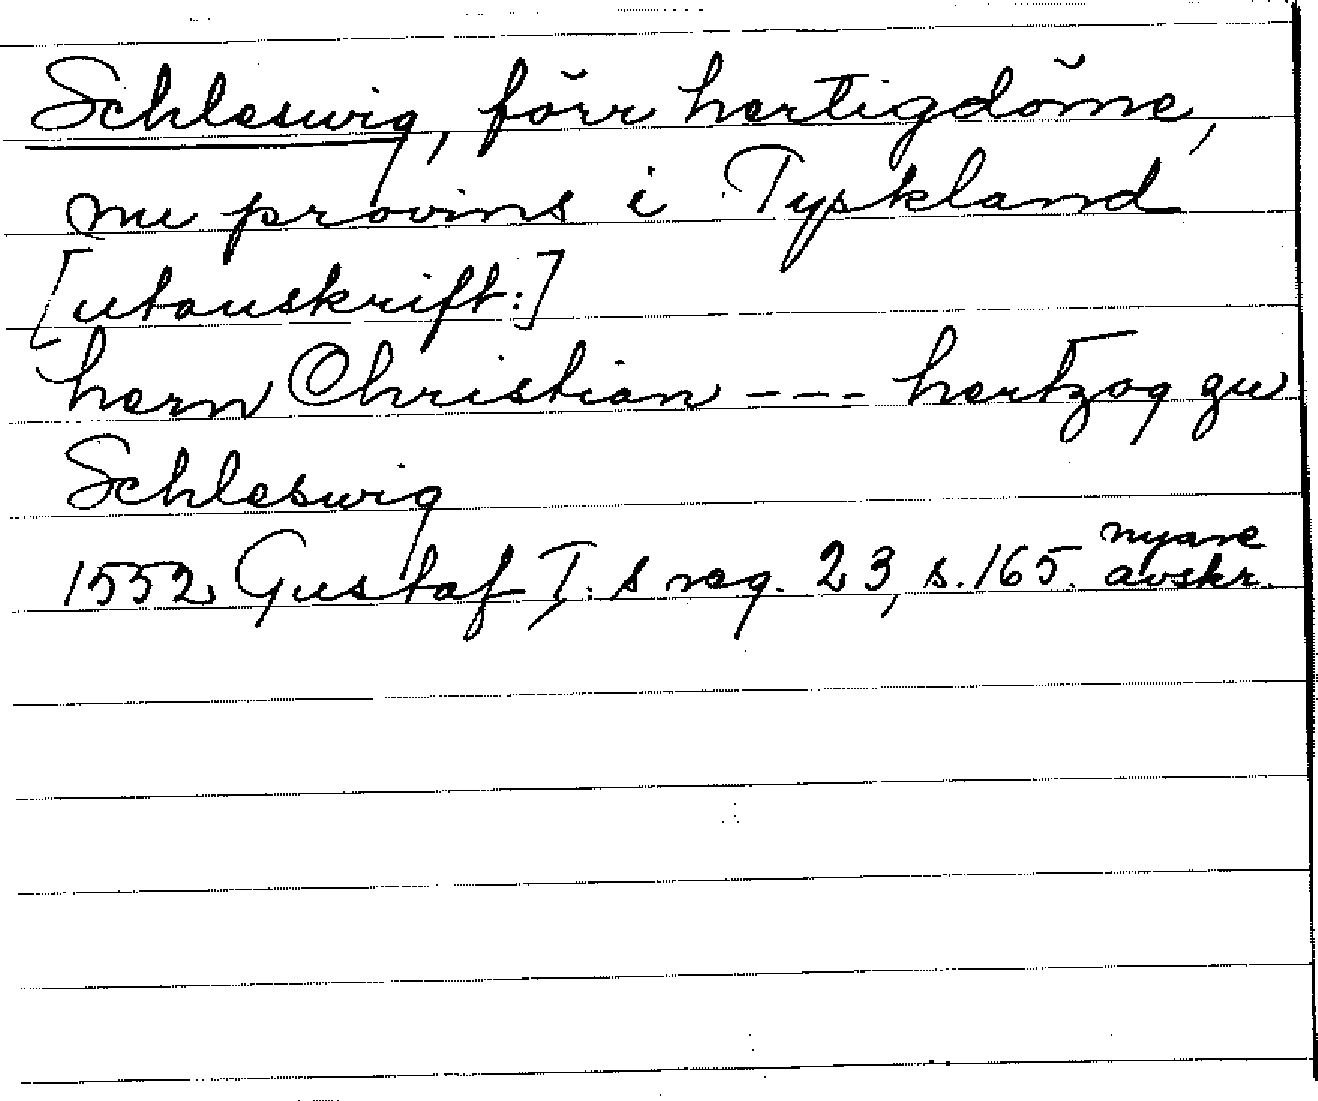 Schleswig, förr hertigdöme,
nu provins i Tyskland
[utanskrift:]
hern Christian --- hertzog zu
Schleswig
1552 Gustaf I:s reg. 23, s. 165. nyare avskr.